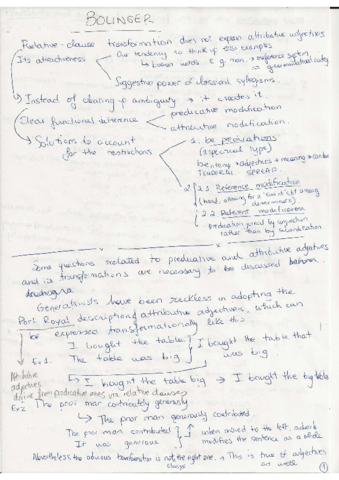 BOLINGER
Relative-clause transformation does not explain attributive adjectives
Its attractiveness
Our tendency to think of examples
broken words e.g. man → reference system
= grammatical categ
Suggestive power of classical syllogisms.
Instead of clearing up ambiguity → it creates it
Clear functional difference
predicative modification
attributive modification.
Solutions to account
for the restrictions
1. be predications
(2 special type)
be + adjectives + meaning
TEMPORAL SPREAD.
2
2.1 Reference modification
among
determiners)
2.2 Referent modification
Predication joined by conjunction
rather than by subordination
Some questions related to predicative and attributive adjectives
and its transformations are necessary to be discussed
Generativists have been reckless in adopting the
Port Royal description of attributive adjectives, which can
be expressed transformationally like this:
Ex. 1. I bought the table
The table was big
I bought the table that
was big
I bought the table big → I bought the big table
Attributive
adjectives
derive from predicative ones via relative clauses
Ex2 The poor man contributed generously
The poor man generously contributed.
The poor man contributed
It was generous
when moved to the left adverb
modifies the sentence as a whole
Nevertheless the obvious transformation is not the right one. → This is true of adjectives
as well
1